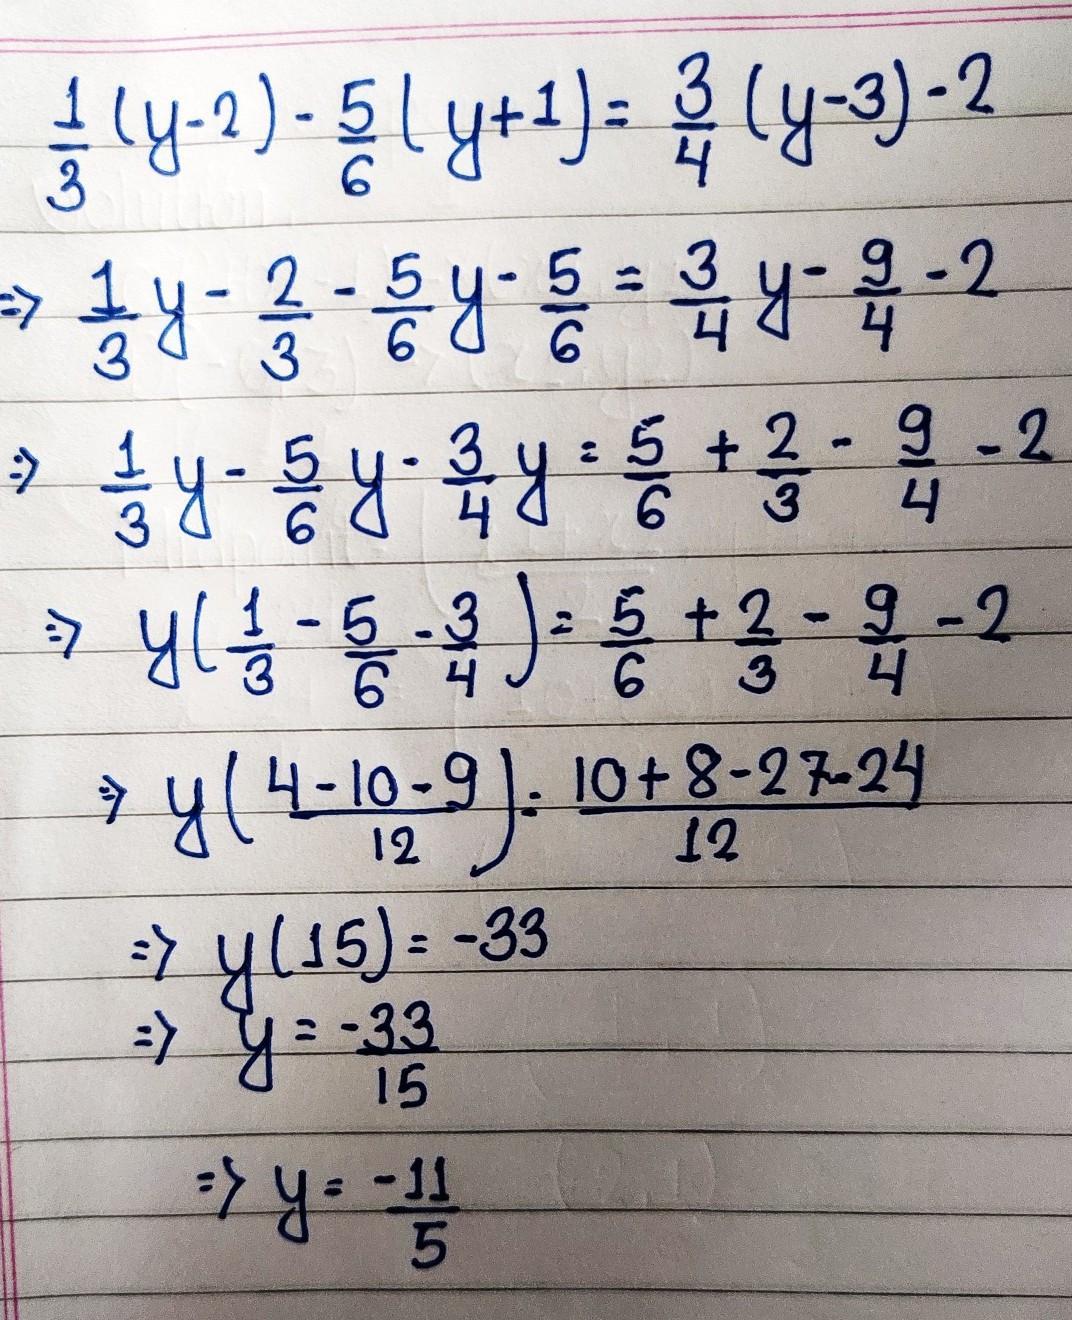 1/3 (y-2) - 5/6 (y+1) = 3/4 (y-3) - 2
⇒ 1/3 y - 2/3 - 5/6 y - 5/6 = 3/4 y - 9/4 - 2
⇒ 1/3 y - 5/6 y - 3/4 y = 5/6 + 2/3 - 9/4 - 2
⇒ y(1/3 - 5/6 - 3/4) = 5/6 + 2/3 - 9/4 - 2
⇒ y((4-10-9)/12) = (10+8-27-24)/12
⇒ y(15) = -33
⇒ y = -33/15
⇒ y = -11/5